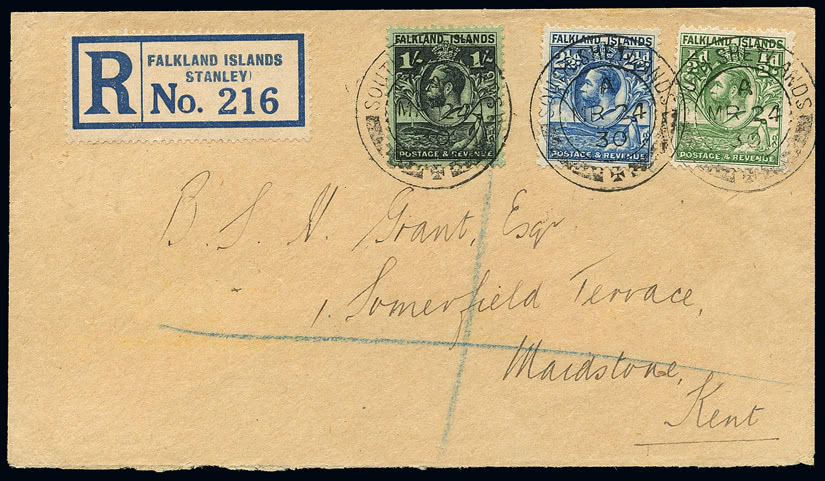 R
FALKLAND ISLANDS
STANLEY)
No. 216
FALKLAND ISLANDS
1/- 1/-
POSTAGE & REVENUE
FALKLAND ISLANDS
POSTAGE & REVENUE
FALKLAND ISLANDS
POSTAGE & REVENUE
SOUTH SHETLANDS
A
MR 24
30
SOUTH SHETLANDS
A
MR 24
30
B. S. H. Grant, Esqr
1. Somerfield Terrace,
Maidstone,
Kent